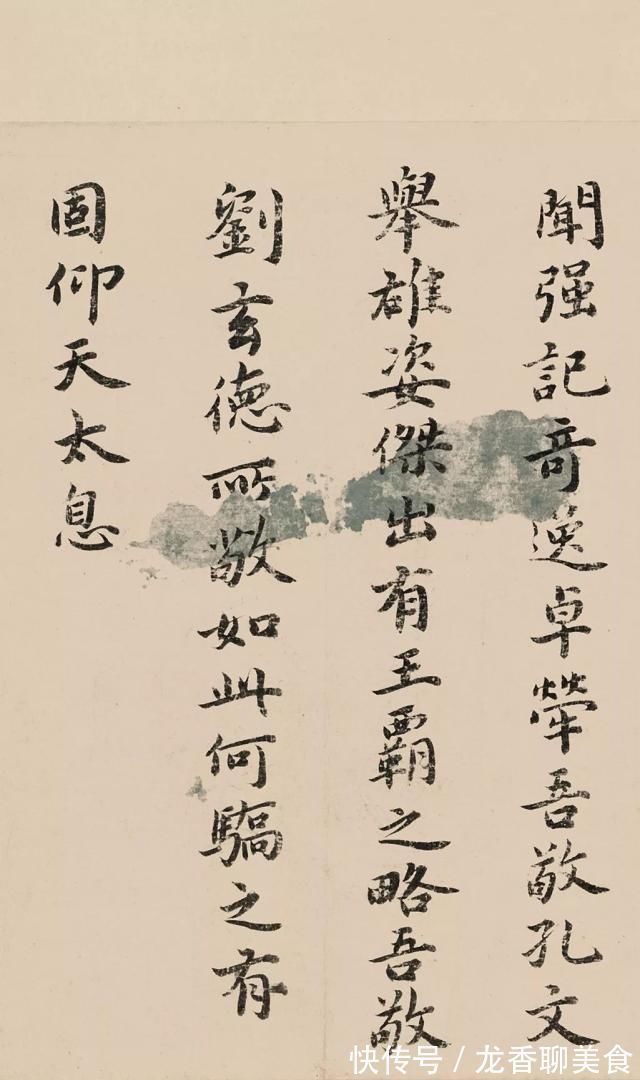 聞强記奇逸卓犖吾敬孔文
舉雄姿傑出有王霸之略吾敬
劉玄德所敬如此何驕之有
固仰天太息
快传号／龙香聊美食